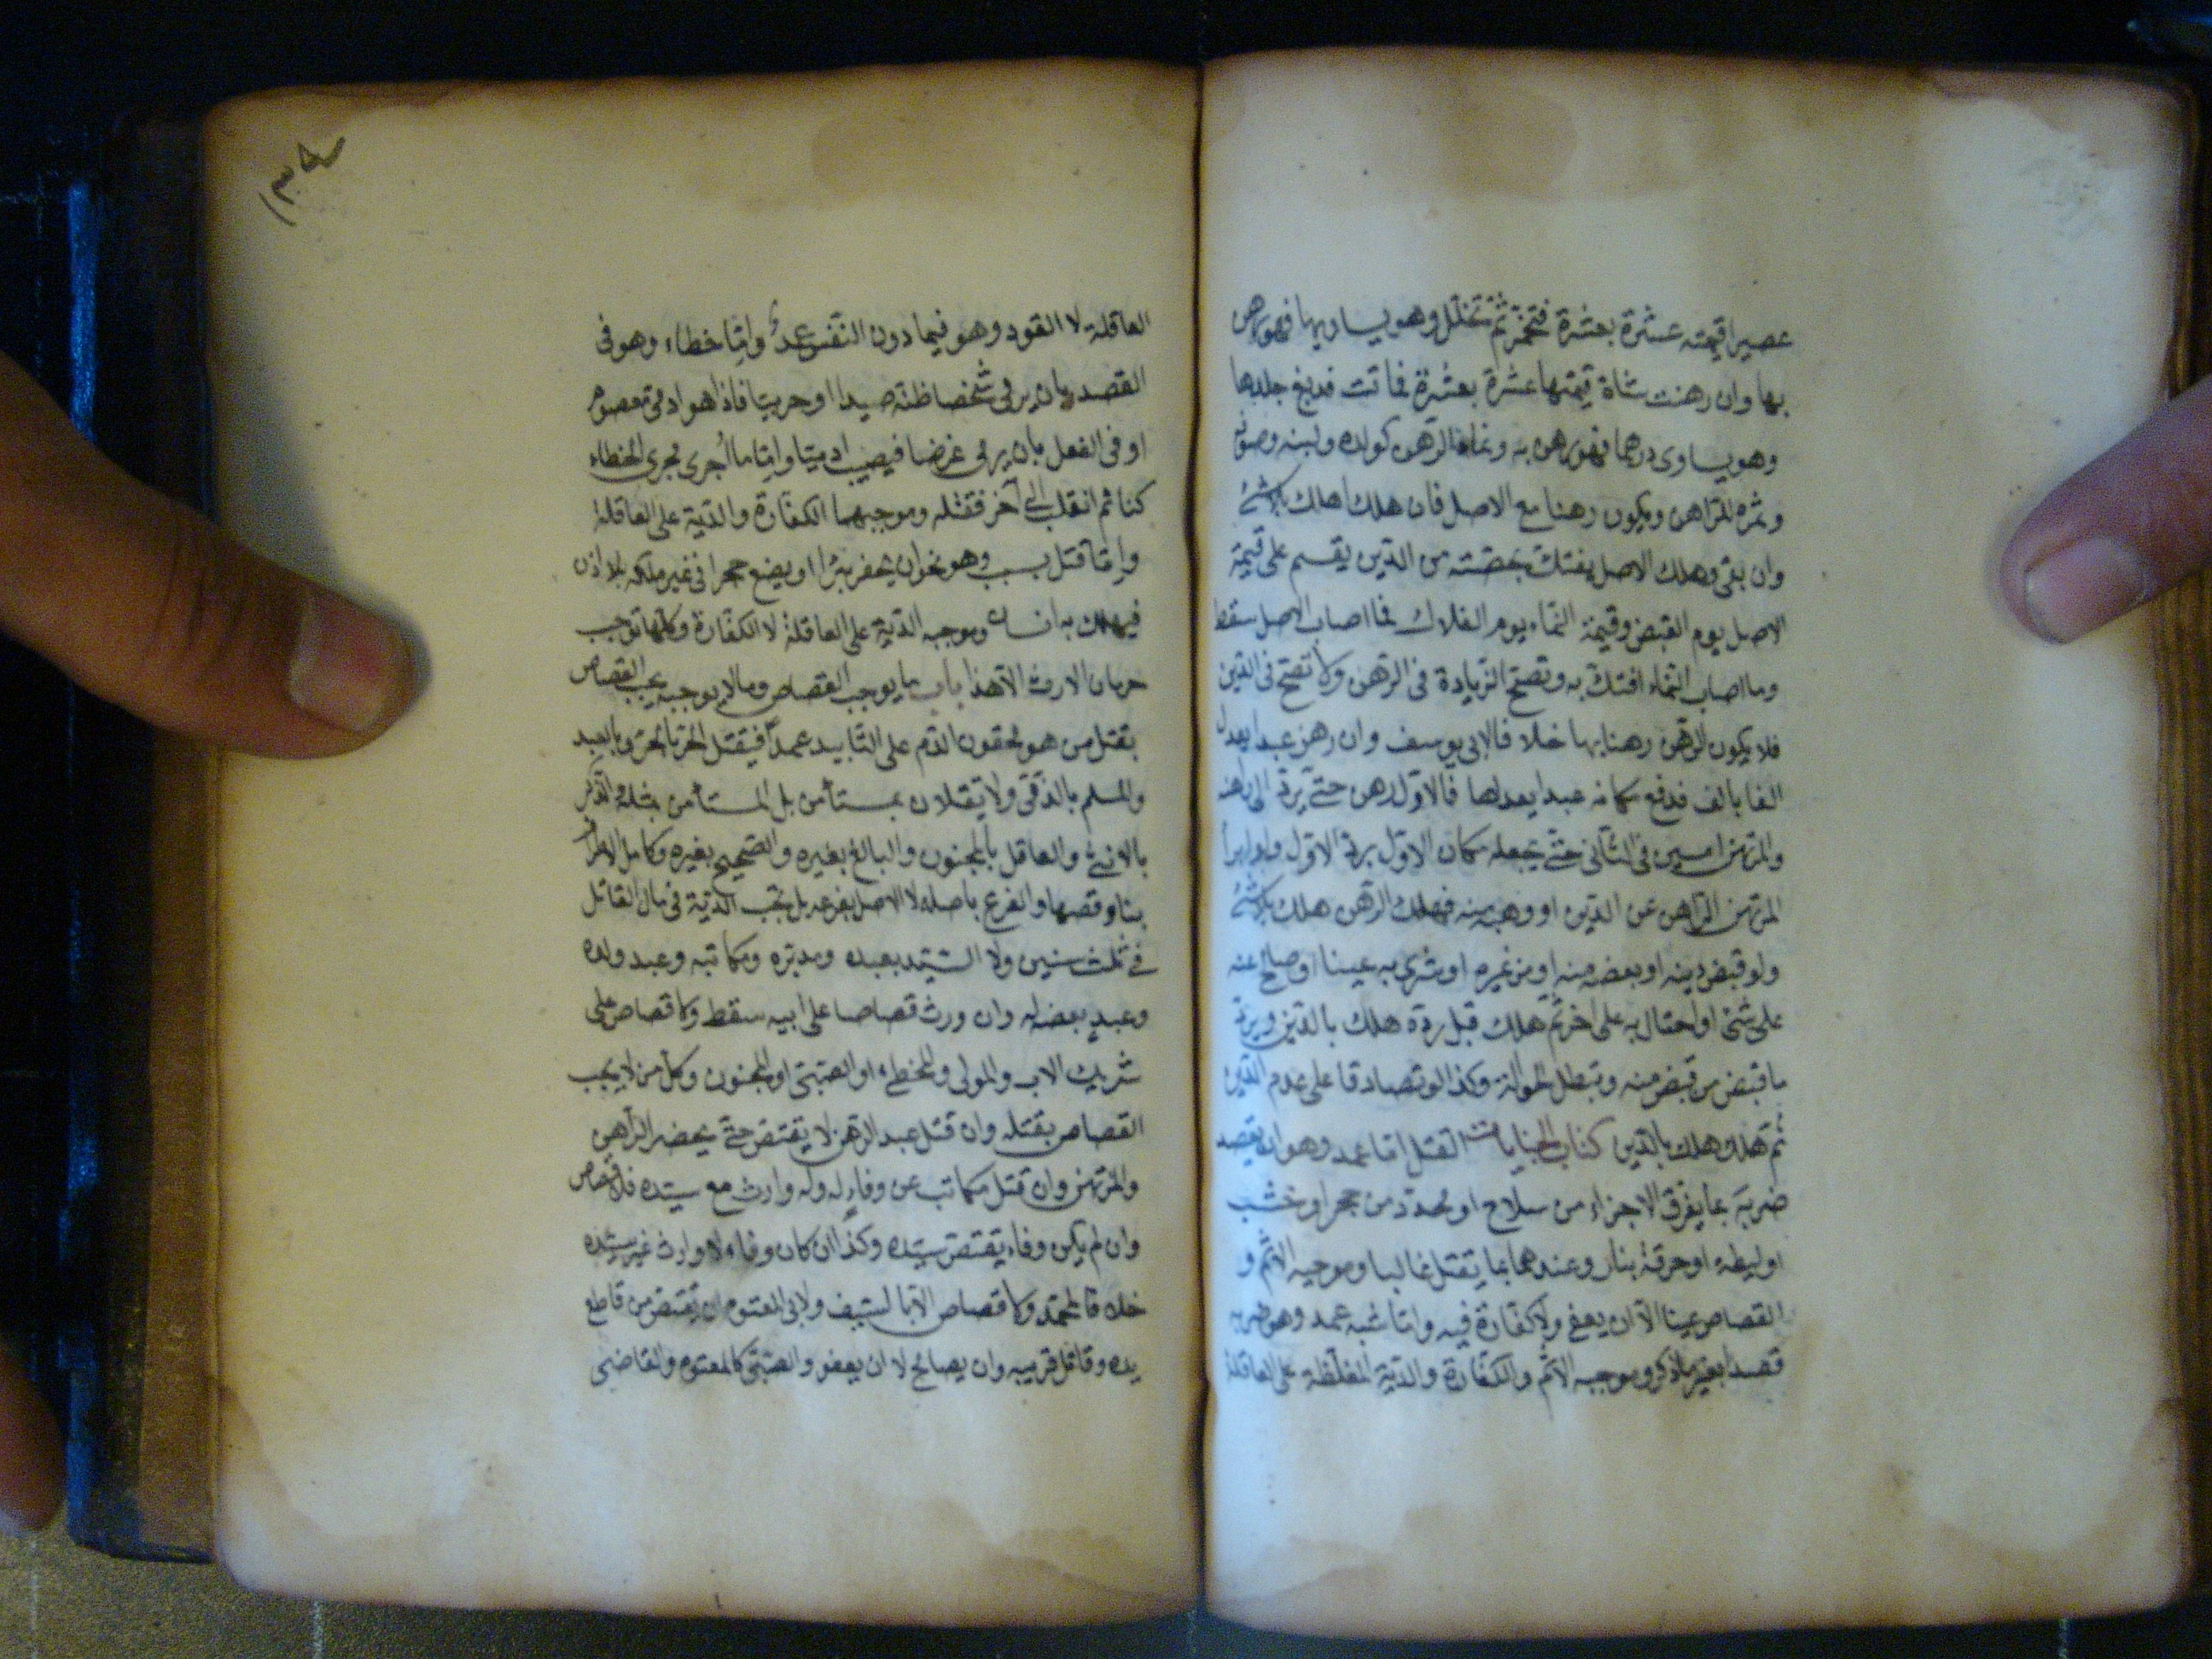 عصيرا قيمته عشرة بعشرة فتخمر ثم تخلل وهو يساويها فهو رهن
بها وان رهنت شاة قيمتها عشرة بعشرة فماتت فدبغ جلدها
وهو يساوى درهما فهو رهن به ونماء الرهن كولده ولبنه وصوفه
وثمره للراهن ويكون رهنا مع الاصل فان هلك هلك بلا شئ
وان بقى وهلك الاصل يفتك بحصته من الدين يقسم على قيمة
الاصل يوم القبض وقيمة النماء يوم الفكاك فما اصاب الاصل سقط
وما اصاب النماء افتك به وتصح الزيادة فى الرهن ولا تصح فى الدين
فلا يكون الرهن رهنا بها خلافا لابى يوسف وان رهن عبدا يعدل
الفا بالف فدفع مكانه عبدا يعدلها فالاول رهن حتى يرد الى راهنه
والمرتهن امين فى الثانى حتى يجعله مكان الاول برد الاول ولو ابرأ
المرتهن الراهن عن الدين او وهبه منه فهلك الرهن هلك بلا شئ
ولو قبض دينه او بعضه منه او من غيره او شرى به عينا او صالح عنه
على شئ او احتال به على اخر ثم هلك قبل رده هلك بالدين ويرد
ما قبض من قبض منه وتبطل الحوالة وكذا لو تصادقا على عدم الدين
ثم هلك هلك بالدين كتاب الجنايات القتل اما عمد وهو ان يقصد
ضربه بما يفرق الاجزاء من سلاح او محدد من حجر او خشب
او ليطة او حرقة بنار وعندهما بما يقتل غالبا وموجبه الاثم و
القصاص عينا الا ان يعفى ولا كفارة فيه واما شبه عمد وهو ضربه
قصدا بغير ما ذكر وموجبه الاثم والكفارة والدية المغلظة على العاقلة
العاقلة لا القود وهو فيما دون النفس عمد واما خطاء وهو فى
القصد بان يرمى شخصا ظنه صيدا او حربيا فاذا هو ادمى معصوم
او فى الفعل بان يرمى غرضا فيصيب ادميا واما ما اجرى مجرى الخطاء
كنائم انقلب الى آخر فقتله وموجبهما الكفارة والدية على العاقلة
واما قتل بسبب وهو نحو ان يحفر بئرا او يضع حجرا فى غير ملكه بلا اذن
فيهلك به انسان وموجبه الدية على العاقلة لا الكفارة وكلها توجب
حرمان الارث الا هذا باب ما يوجب القصاص وما لا يوجبه يجب القصاص
بقتل من هو محقون الدم على التأبيد عمدا فيقتل الحر بالحر وبالعبد
والمسلم بالذمى ولا يقتلان بمستأمن بل المستأمن بمثله والذكر
بالانثى والعاقل بالمجنون والبالغ بغيره والصحيح بغيره وكامل الاطراف
بناقصها والفرع باصله لا الاصل بفرعه بل تجب الدية فى مال القاتل
فى ثلث سنين ولا السيد بعبده ومدبره ومكاتبه وعبد ولده
وعبد بعضه له وان ورث قصاصا على ابيه سقط ولا قصاص على
شريك الاب والمولى والمخطئ او الصبى او المجنون وكل من لا يجب
القصاص بقتله وان قتل عبد الرهن لا يقتص حتى يحضر الراهن
والمرتهن وان قتل مكاتب عن وفاء له وله وارث مع سيده فلا قصاص
وان لم يكن وفاء يقتص سيده وكذا ان كان وفاء ولا وارث غير سيده
خلافا لمحمد ولا قصاص الا بالسيف ولابى المعتوه ان يقتص من قاطع
يده وقاتل قريبه وان يصالح لا ان يعفو والصبى كالمعتوه والقاضى